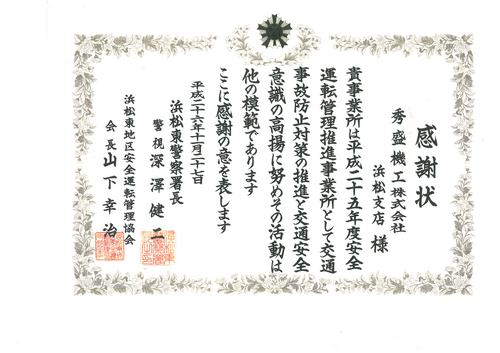 感謝状
秀盛機工株式会社
浜松支店 様
貴事業所は平成二十五年度安全
運転管理推進事業所として交通
事故防止対策の推進と交通安全
意識の高揚に努めその活動は
他の模範であります
ここに感謝の意を表します
平成二十六年十一月二十七日
浜松東警察署長
警視 深澤健二
浜松東地区安全運転管理協会
会長 山下幸治